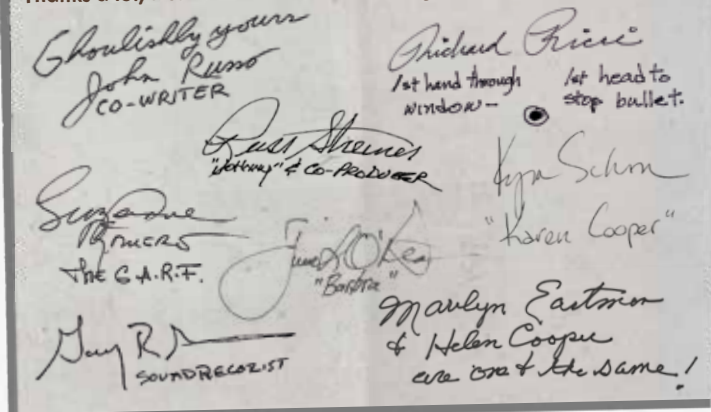 Thanks a lot,
Ghoulishly yours
John Russo
CO-WRITER
Richard Ricci
1st hand through
window -
1st head to
stop bullet.
Russ Streiner
"Johnny" & CO-PRODUCER
Kyra Schon
"Karen Cooper"
Suzanne
THE G.A.R.F.
Judith O'Dea
"Barbra"
Gary R
SOUNDRECORIST
Marilyn Eastman
& Helen Cooper
are one & the same!